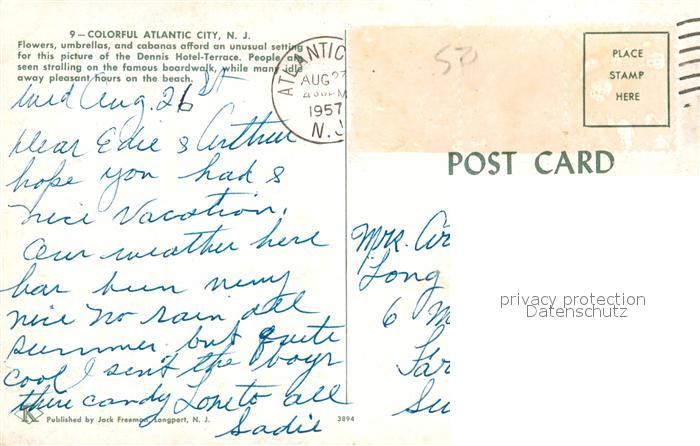 9 — COLORFUL ATLANTIC CITY, N. J.
Flowers, umbrellas, and cabanas afford an unusual setting
for this picture of the Dennis Hotel-Terrace. People are
seen strolling on the famous boardwalk, while many idle
away pleasant hours on the beach.
Wed Aug. 26 st
Dear Edie & Arthur
hope you had a
nice Vacation.
Our weather here
has been very
nice no rain all
summer but quite
cool I sent the boys
their candy Love to all
Sadie
K Published by Jack Freeman, Longport, N. J.
3894
ATLANTIC
AUG 27
PM
1957
N. J.
50
PLACE
STAMP
HERE
POST CARD
Mrs. Ar
Long
6 M
Far
Su
privacy protection
Datenschutz